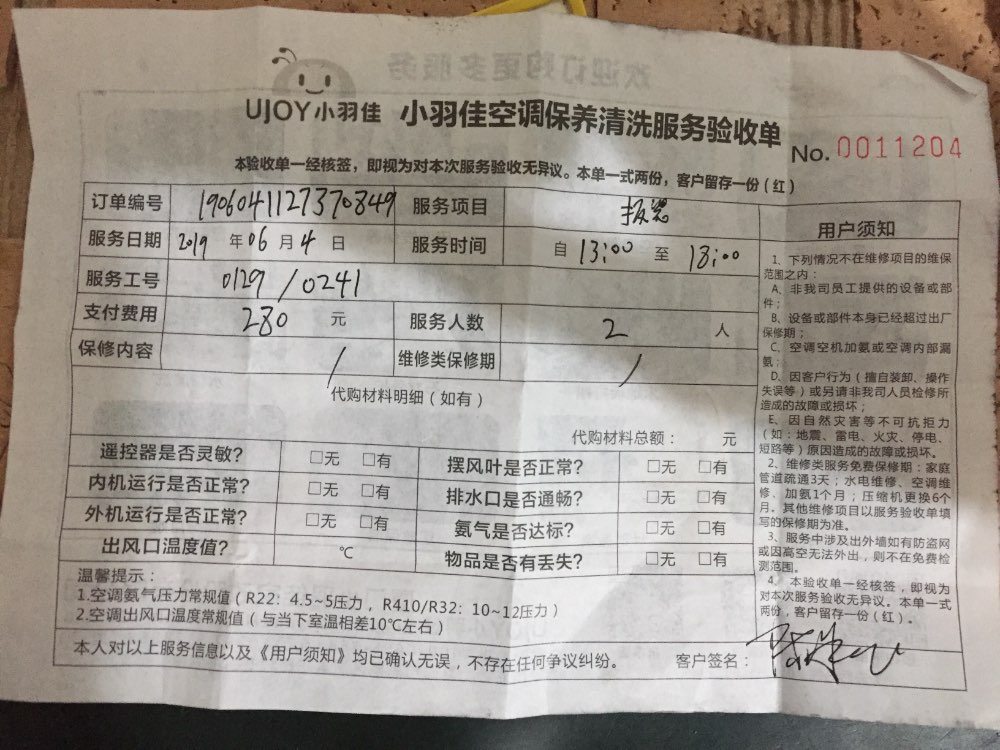 欢迎订购更多服务
UJOY小羽佳 小羽佳空调保养清洗服务验收单
No. 0011204
本验收单一经核签，即视为对本次服务验收无异议。本单一式两份，客户留存一份（红）
订单编号 1906041127370849 服务项目
服务日期 2019 年 06 月 4 日 服务时间 自 13:00 至 18:00
服务工号 0129 / 0241
支付费用 280 元 服务人数 2 人
保修内容 / 维修类保修期 /
代购材料明细（如有）
代购材料总额： 元
遥控器是否灵敏? □无 □有 摆风叶是否正常? □无 □有
内机运行是否正常? □无 □有 排水口是否通畅? □无 □有
外机运行是否正常? □无 □有 氨气是否达标? □无 □有
出风口温度值? ℃ 物品是否有丢失? □无 □有
温馨提示：
1.空调氨气压力常规值（R22：4.5~5压力，R410/R32：10~12压力）
2.空调出风口温度常规值（与当下室温相差10℃左右）
本人对以上服务信息以及《用户须知》均已确认无误，不存在任何争议纠纷。 客户签名：
用户须知
1、下列情况不在维修项目的维保
范围之内：
A、非我司员工提供的设备或部
件；
B、设备或部件本身已经超过出厂
保修期；
C、空调空机加氨或空调内部漏
氨；
D、因客户行为（擅自装卸、操作
失误等）或另请非我司人员检修所
造成的故障或损坏；
E、因自然灾害等不可抗拒力
（如：地震、雷电、火灾、停电、
短路等）原因造成的故障或损坏。
2、维修类服务免费保修期：家庭
管道疏通3天；水电维修、空调维
修、加氨1个月；压缩机更换6个
月。其他维修项目以服务验收单填
写的保修期为准。
3、服务中涉及出外墙如有防盗网
或因高空无法外出，则不在免费检
测范围。
4、本验收单一经核签，即视为
对本次服务验收无异议。本单一式
两份，客户留存一份（红）。